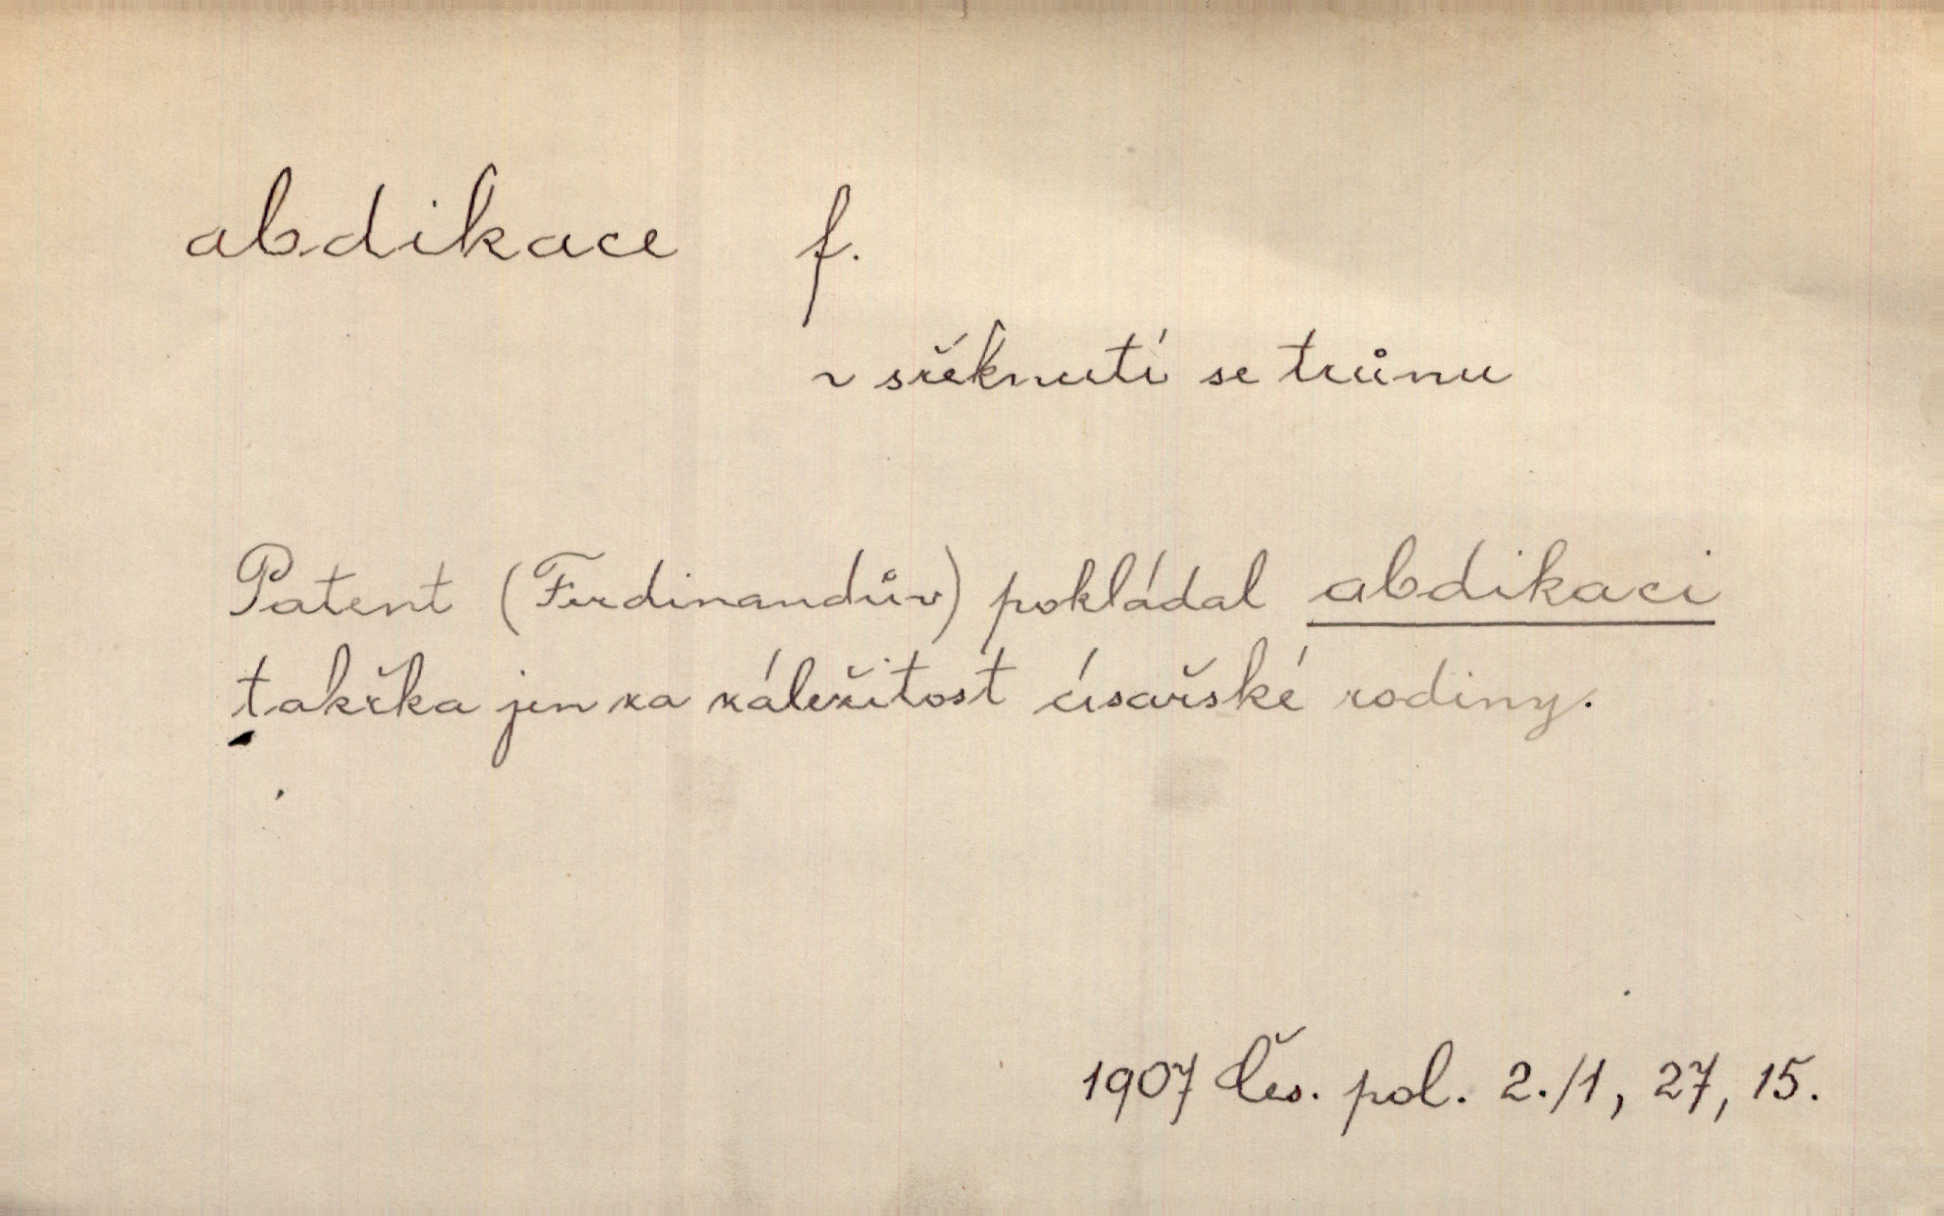 abdikace f.
~ zřeknutí se trůnu
Patent (Ferdinandův) pokládal abdikaci
takřka jen za záležitost císařské rodiny.
1907 Čes. pol. 2./1, 27, 15.